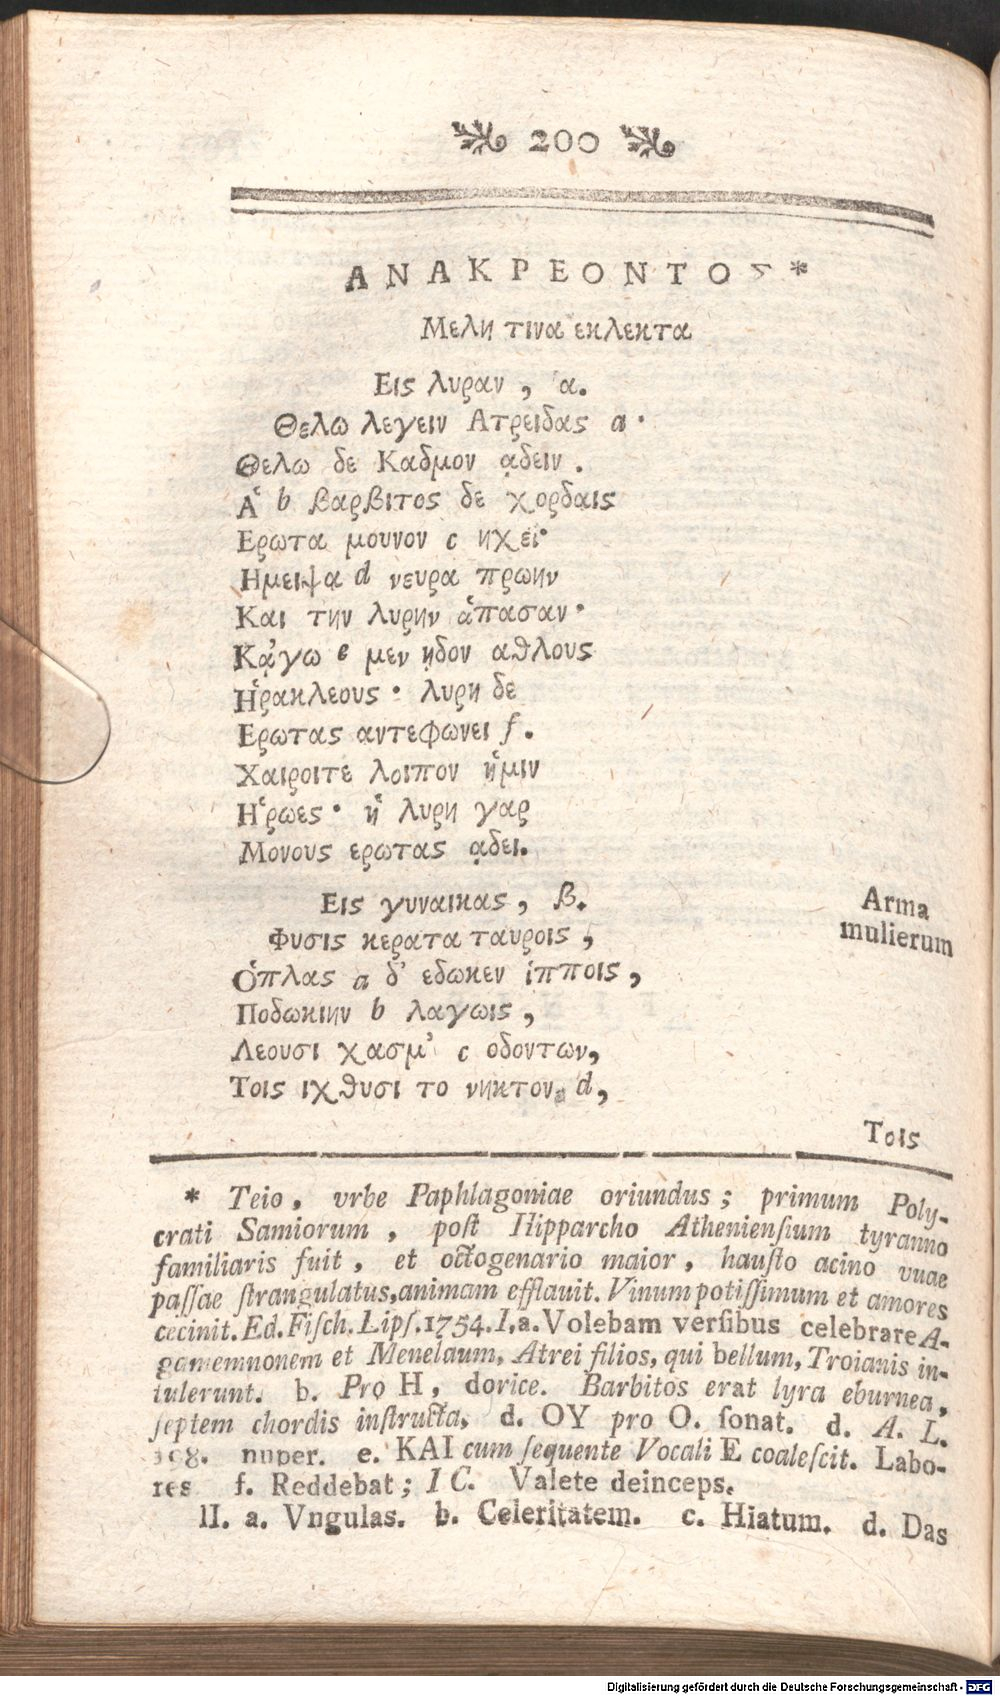 200
ΑΝΑΚΡΕΟΝΤΟς*
Μελη τινα εκλεκτα
Εις λυραν, α.
Θελω λεγειν Ατρειδας a·
Θελω δε Καδμον ᾳδειν.
Ἁ b βαρβιτος δε χορδαις
Ερωτα μουνον c ηχει·
Ημειψα d νευρα πρωην
Και την λυρην ἁπασαν·
Κᾀγω e μεν ῃδον αθλους
Ἡρακλεους· λυρη δε
Ερωτας αντεφωνει f.
Χαιροιτε λοιπον ἡμιν
Ἡρωες· ἡ λυρη γαρ
Μονους ερωτας ᾳδει.
Εις γυναικας, β.
Arma
mulierum
Φυσις κερατα ταυροις,
Ὁπλας a δ' εδωκεν ἱπποις,
Ποδωκιην b λαγωις,
Λεουσι χασμ' c οδοντων,
Τοις ιχθυσι το νηκτον d,
Τοις
* Teio, vrbe Paphlagoniae oriundus; primum Poly-
crati Samiorum, poſt Hipparcho Athenienſium tyranno
familiaris fuit, et octogenario maior, hauſto acino vuae
paſſae ſtrangulatus, animam efflauit. Vinum potiſſimum et amores
cecinit. Ed. Fiſch. Lipſ. 1754. I. a. Volebam verſibus celebrare A-
gamemnonem et Menelaum, Atrei filios, qui bellum, Troianis in-
tulerunt. b. Pro H, dorice. Barbitos erat lyra eburnea,
ſeptem chordis inſtructa, d. OY pro O. ſonat. d. A. L.
198. nuper. e. KAI cum ſequente Vocali E coaleſcit. Labo-
res f. Reddebat; I C. Valete deinceps.
II. a. Vngulas. b. Celeritatem. c. Hiatum. d. Das
Digitalisierung gefördert durch die Deutsche Forschungsgemeinschaft - DFG